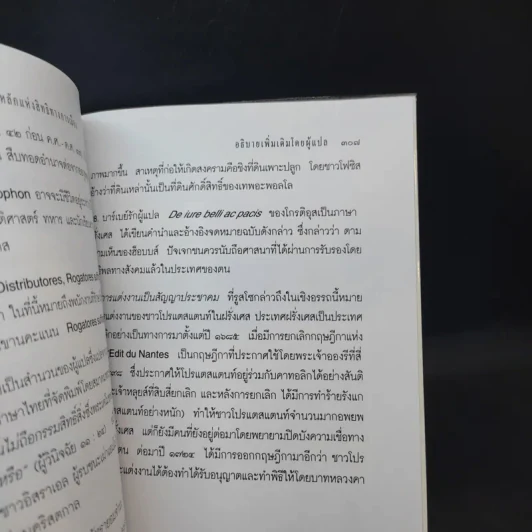 หลักแห่งสิทธิทางการเมือง
๔๒ ก่อน ค.ศ.-ค.ศ.
สืบทอดอำนาจต่อจาก
ophon อาจจะมีชีวิตอยู่
ติศาสตร์ ทหาร และนัก
ส
Distributores, Rogatores
ในที่นี้หมายถึงพนักงาน
ขานคะแนน Rogatores
เป็นสำนวนของผู้แปลซึ่ง
ภาษาไทยที่จัดพิมพ์โดย
นไม่ถือกรรมสิทธิ์สิ่งซึ่ง
หรือ" (ผู้วินิจฉัย ๑๑ : ๒๔)
ชาวอิสราเอล ผู้รบชนะ
นคริสตกาล
อธิบายเพิ่มเติมโดยผู้แปล ๓๐๗
ภาพมากขึ้น สาเหตุที่ก่อให้เกิดสงครามคือชิงที่ดินเพาะปลูก โดยชาวโฟซิส
อ้างว่าที่ดินเหล่านั้นเป็นที่ดินศักดิ์สิทธิ์ของเทพอะพอลโล
บาร์เบย์รักผู้แปล De iure belli ac pacis ของโกรติอุสเป็นภาษา
งเศส ได้เขียนคำนำและอ้างอิงจดหมายฉบับดังกล่าว ซึ่งกล่าวว่า ตาม
วามเห็นของฮ็อบบส์ ปัจเจกชนควรนับถือศาสนาที่ได้ผ่านการรับรองโดย
พลทางสังคมแล้วในประเทศของตน
การแต่งงานเป็นสัญญาประชาคม ที่รูสโซกล่าวถึงในเชิงอรรถนี้หมาย
งานแต่งงานของชาวโปรเตสแตนท์ในฝรั่งเศส ประเทศฝรั่งเศสเป็นประเทศ
ลิกอย่างเป็นทางการมาตั้งแต่ปี ๑๖๘๕ เมื่อมีการยกเลิกกฤษฎีกาแห่ง
Edit du Nantes เป็นกฤษฎีกาที่ประกาศใช้โดยพระเจ้าอองรีที่สี่
๙๘ ซึ่งประกาศให้โปรเตสแตนท์อยู่ร่วมกับคาทอลิกได้อย่างสันติ
ะเจ้าหลุยส์ที่สิบสี่ยกเลิก และหลังการยกเลิก ได้มีการทำร้ายรังแก
ตสแตนท์อย่างหนัก) ทำให้ชาวโปรเตสแตนท์จำนวนมากอพยพ
รั่งเศส แต่ก็ยังมีคนที่ยังอยู่ต่อมาโดยพยายามปิดบังความเชื่อทาง
คน ต่อมาปี ๑๗๒๔ ได้มีการออกกฤษฎีกามาอีกว่า ชาวโปร
ะแต่งงานได้ต้องทำได้รับอนุญาตและทำพิธีให้โดยบาทหลวงคา